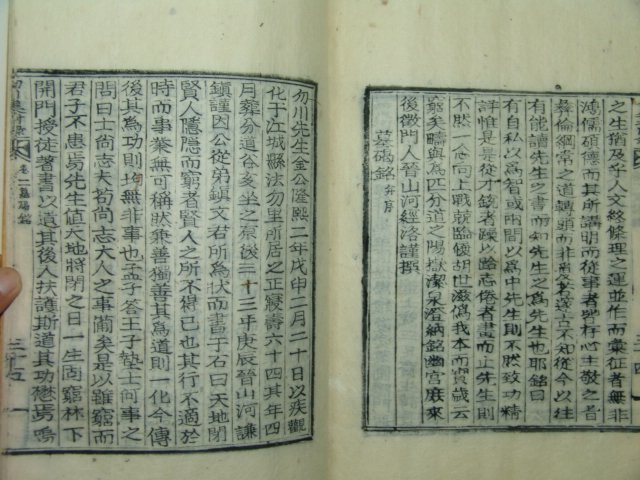 之生猶及乎人文終條理之運並作彙征者無非
鴻儒碩德而其所講明而從事者學存心主敬之旨
彝倫綱常之道轉頭而非
有能讀先生之書而知先生之爲先生也耶銘曰
有自私以爲智或兩間以爲中先生則不然致功精
詳惟是是從才銳者躁以
志倦者畫而止先生則
不然一心向上戰兢臨
我本而實歲云
窮矣疇與爲匹分道之陽嶽潔泉澄並納銘幽宮庶來
後徵門人晉山河經洛謹撰
墓碣銘 并序
勿川先生金公隆熙二年戊申二月二十日以疾觀
化于江城縣法勿里所居之正寢壽六十四其年四
月葬分道谷亥坐之原後三十三年庚辰晉山河謙
鎭謹因公從弟鎭文君所爲狀而書于石曰天地閉
賢人隱隱而窮者賢人之所不得已也其行不適於
時而事業無可稱然兼善獨善其爲道則一化今傳
後其爲功則均無非事也孟子答王子墊士何事之
問曰士尚志夫苟尚志大人之事備矣是以雖窮而
君子不患焉先生値天地將閉之日一生固窮林下
開門授徒著書以遺其後人扶護斯道其功懋焉嗚
卷一 墓碣銘
三十五
三十四